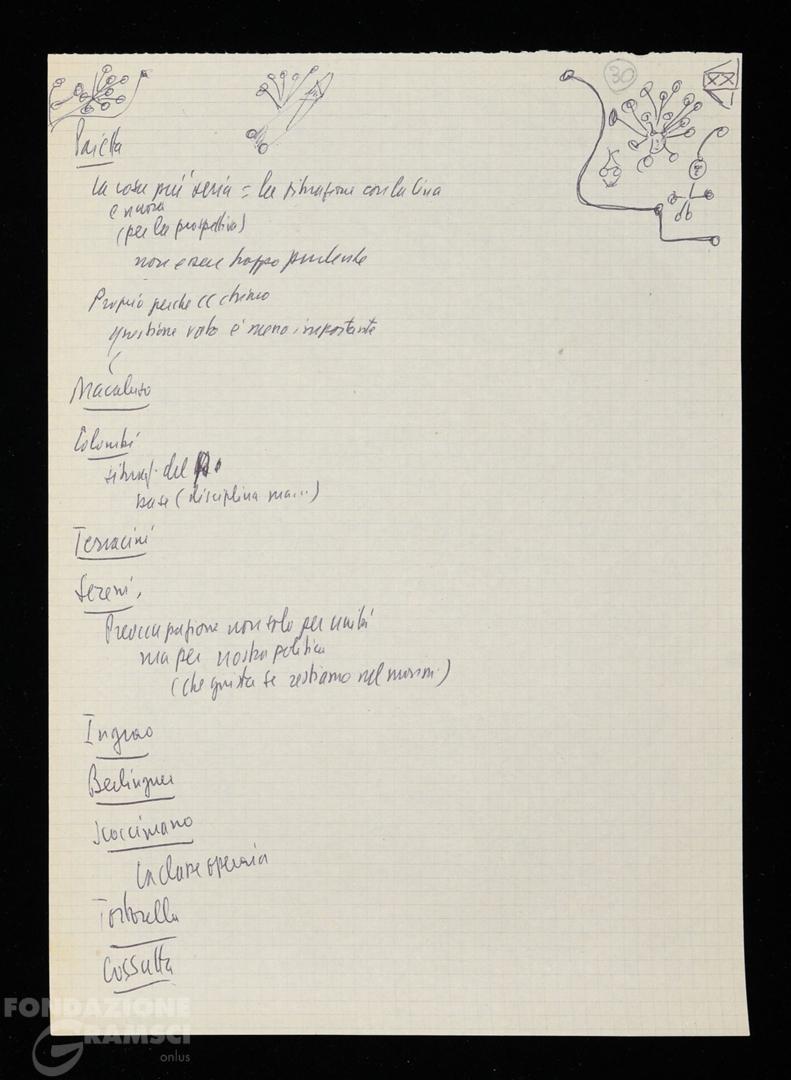 30
XX
Paietta
la cosa più seria = la situazione con la Cina
e nuova
(per la prospettiva)
non essere troppo prudente
Proprio perché ci
questione voto è meno importante
(
Macaluso
Colombi
situaz. del
base (disciplina ma...)
Terracini
Sereni,
Preoccupazione non solo per unità
ma per nostra politica
(che giusta se restiamo nel
Ingrao
Berlinguer
Scoccimarro
La classe operaia
Tortorella
Cossutta
FONDAZIONE
GRAMSCI
onlus